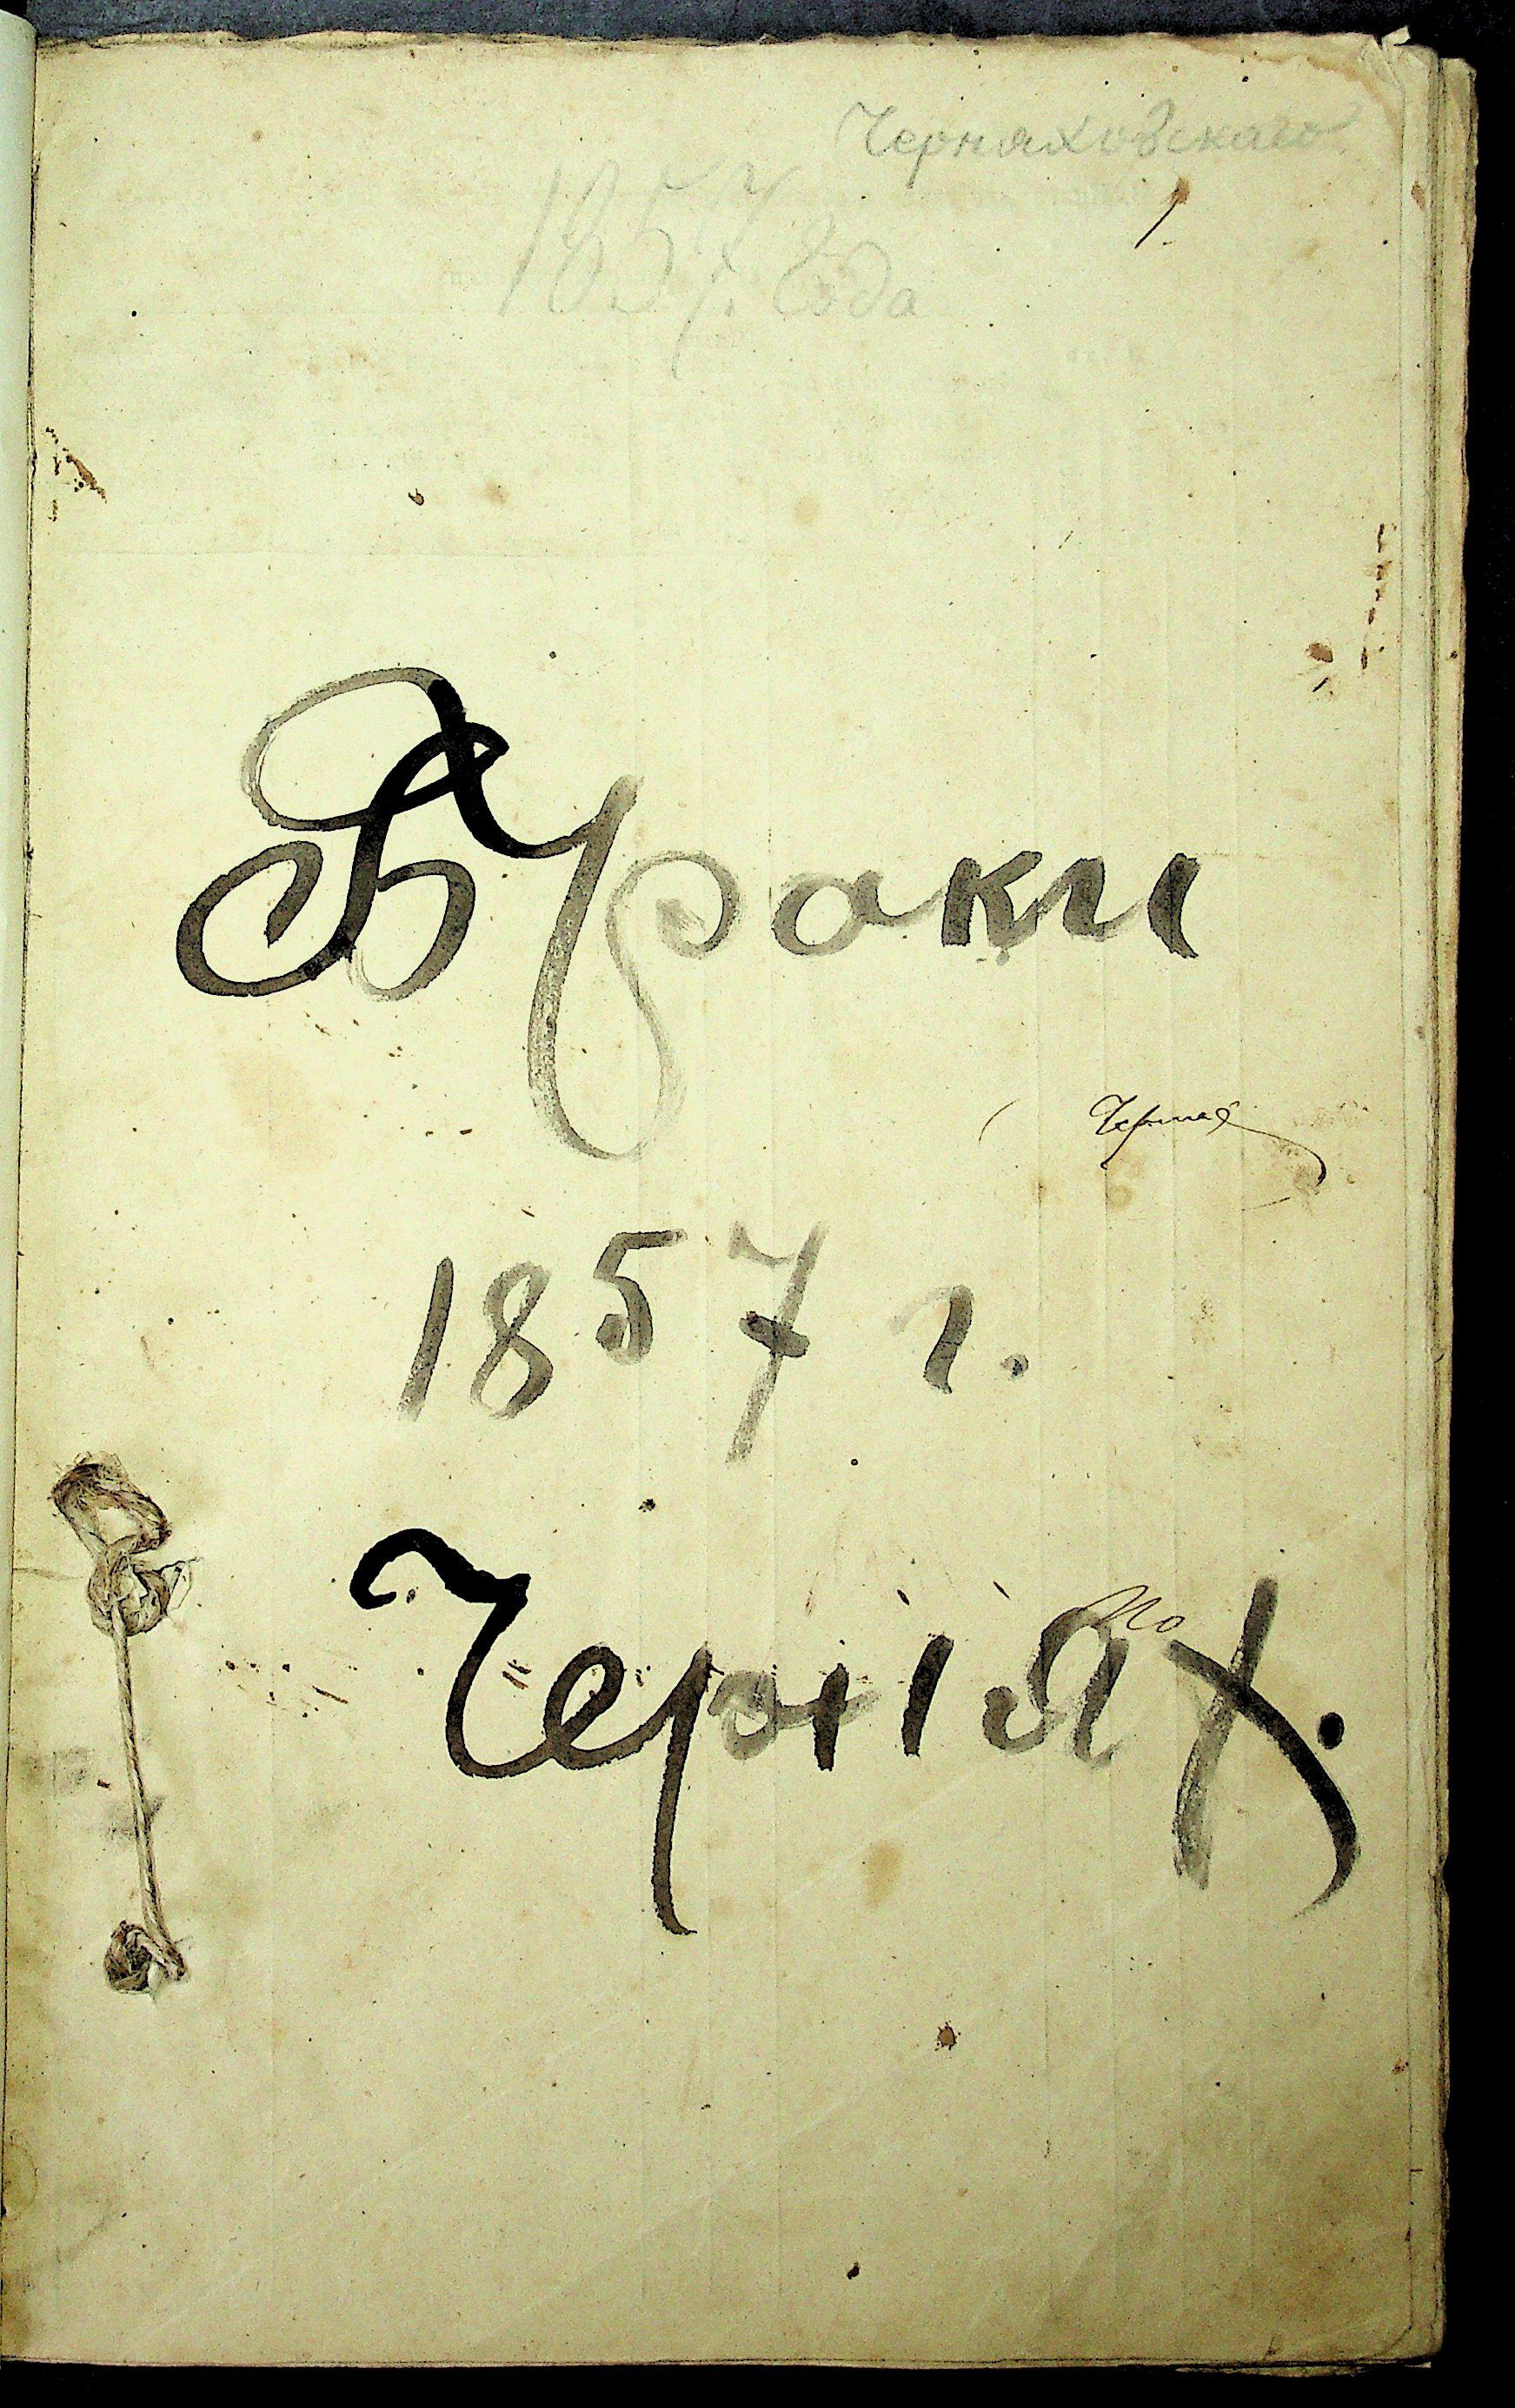 Черняховскаго
1857. года
1.
Браки
1857 г.
Чернях.